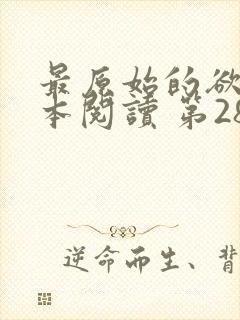 最原始的欲
本閱讀 第28
逆命而生、背